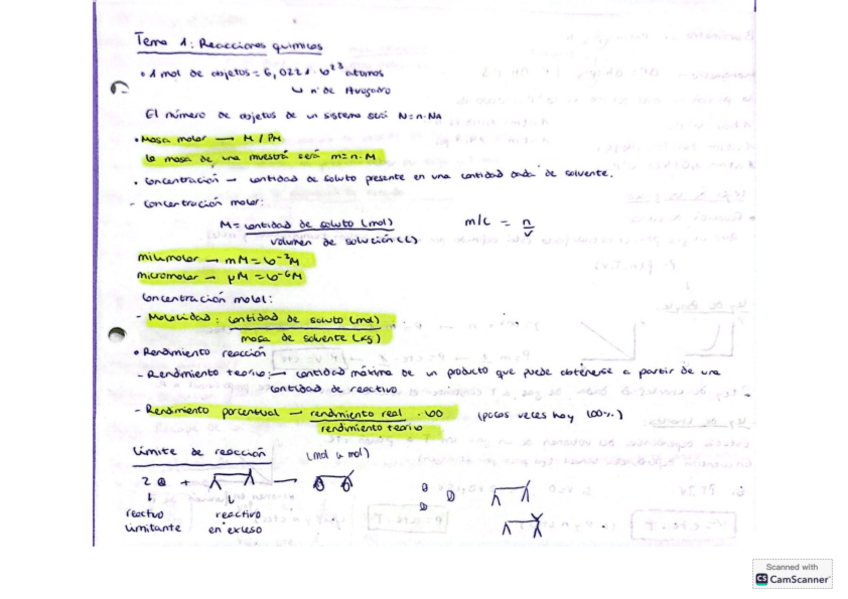 Tema 1: Reacciones químicas
• 1 mol de objetos = 6,0221·10²³ átomos
↳ nº de Avogadro
El número de objetos de un sistema será N=n·NA
• Masa molar → M / PM
la masa de una muestra será m=n·M
• Concentración → cantidad de soluto presente en una cantidad dada de solvente.
- Concentración molar:
M = cantidad de soluto (mol) / volumen de solución (L) m/c = n/V
milimolar → mM = 10⁻³M
micromolar → μM = 10⁻⁶M
Concentración molal:
- Molalidad: cantidad de soluto (mol) / masa de solvente (kg)
• Rendimiento reacción
- Rendimiento teorico: → cantidad máxima de un producto que puede obtenerse a partir de una
cantidad de reactivo
- Rendimiento porcentual → rendimiento real / rendimiento teorico · 100 (pocas veces hay 100%)
Límite de reacción (mol a mol)
2 + →
↓ ↓
reactivo reactivo
limitante en exceso
Scanned with
CS CamScanner